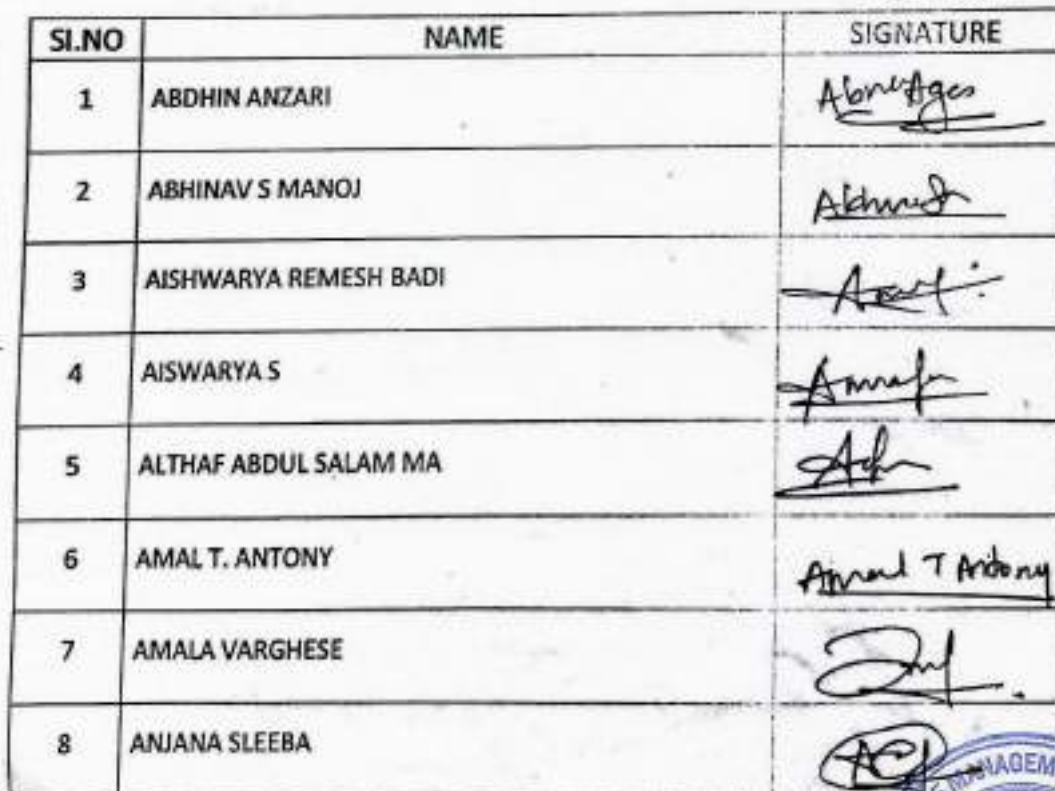 SI.NO NAME SIGNATURE
1 ABDHIN ANZARI
2 ABHINAV S MANOJ
3 AISHWARYA REMESH BADI
4 AISWARYA S
5 ALTHAF ABDUL SALAM MA
6 AMAL T. ANTONY Amal T Antony
7 AMALA VARGHESE
8 ANJANA SLEEBA
MANAGEM